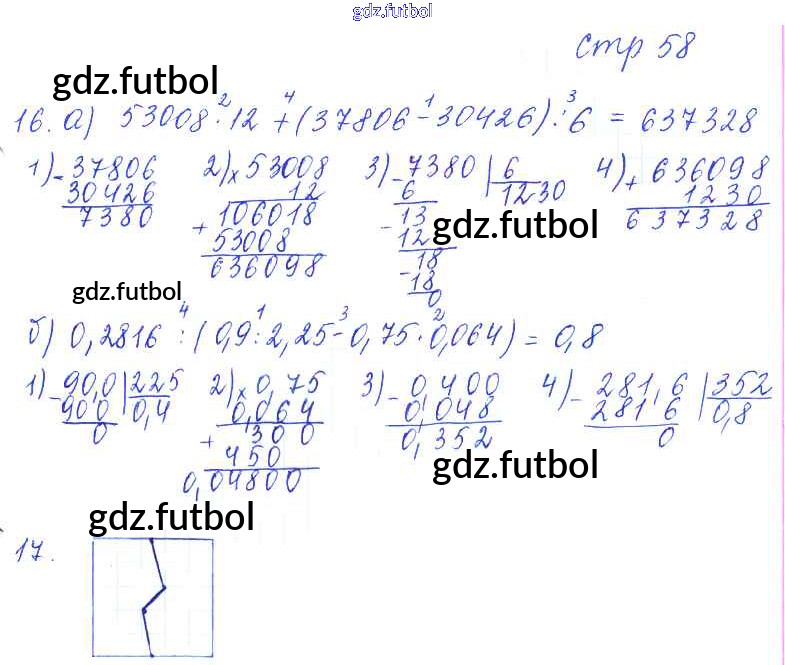 gdz.futbol
стр 58
gdz.futbol
16. а) 53008 · 12 + (37806 - 30426) : 6 = 637328
2 4 1 3
1) - 37806 2) × 53008 3) - 7380 | 6 4) + 636098
30426 12 6 1230 1230
7380 + 106018 - 13 637328
53008 12 gdz.futbol
636098 18
- 18
0
gdz.futbol
4 1 3 2
б) 0,2816 : (0,9 : 2,25 - 0,75 · 0,064) = 0,8
1) - 90,0 | 225 2) × 0,75 3) - 0,400 4) - 281,6 | 352
900 0,4 0,064 0,048 281 6 0,8
0 + 300 0,352 0
450 gdz.futbol
0,04800
gdz.futbol
17.